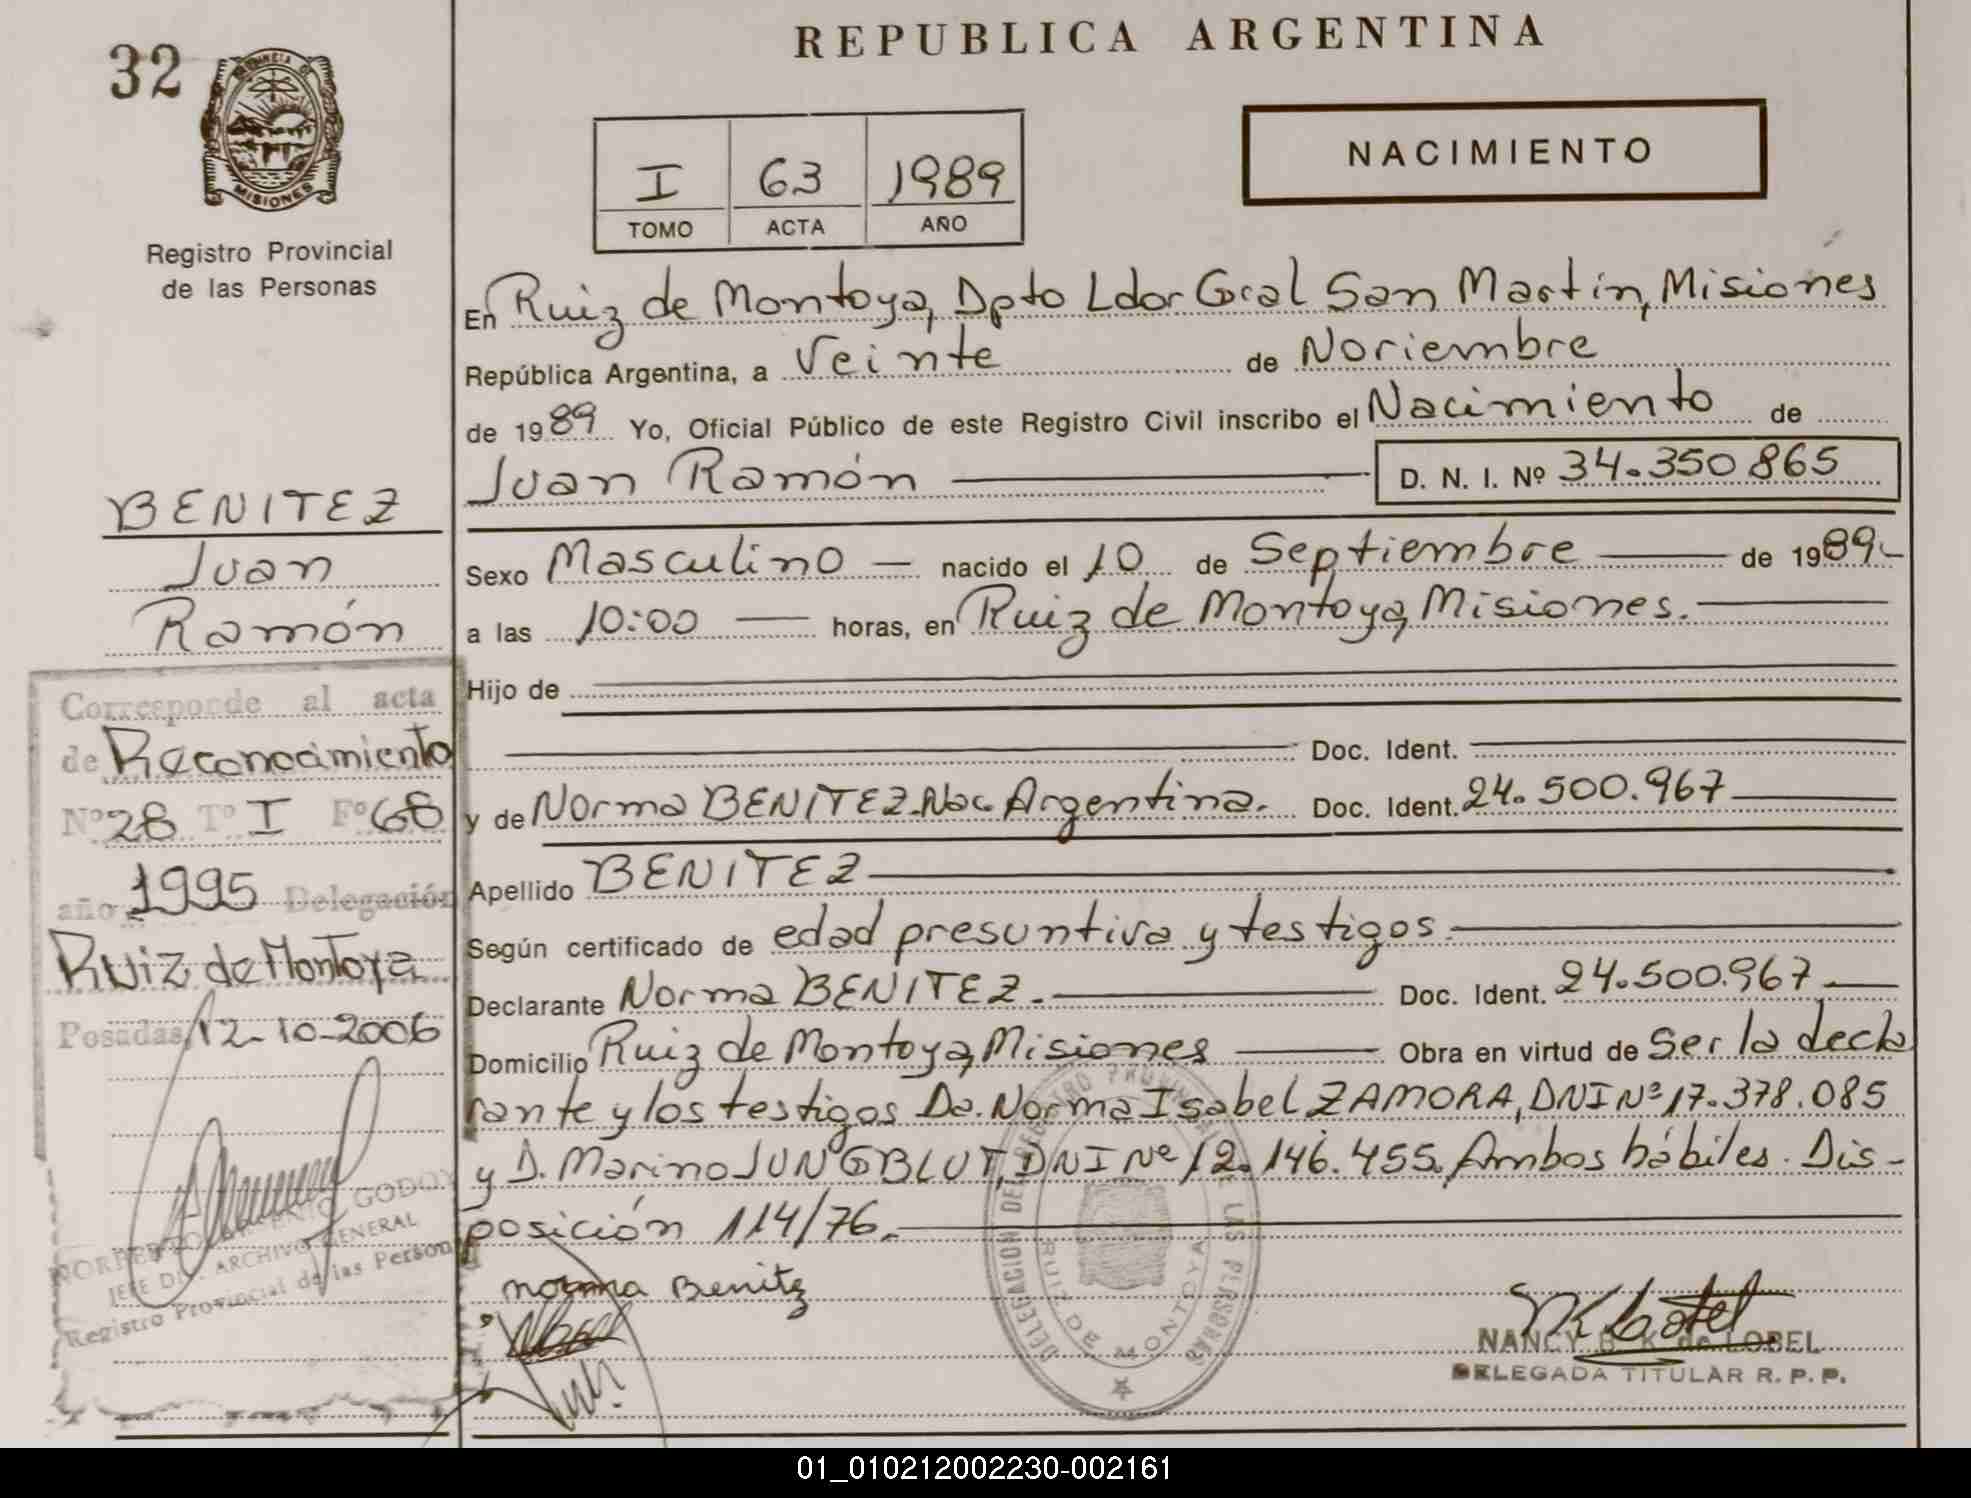 32
PROVINCIA DE
MISIONES
Registro Provincial
de las Personas
BENITEZ
Juan
Ramón
Corresponde al acta
de Reconocimiento
Nº 28 Tº I Fº 68
año 1995 Delegación
Ruiz de Montoya
Posadas, 12-10-2006
NORBERTO GODOY
JEFE ARCHIVO GENERAL
Registro Provincial de las Person
REPUBLICA ARGENTINA
I 63 1989
TOMO ACTA AÑO
NACIMIENTO
En Ruiz de Montoya, Dpto Ldor Gral San Martín, Misiones
República Argentina, a Veinte de Noviembre
de 1989 Yo, Oficial Público de este Registro Civil inscribo el Nacimiento de
Juan Ramón D. N. I. Nº 34.350865
Sexo Masculino nacido el 10 de Septiembre de 1989.-
a las 10:00 horas, en Ruiz de Montoya, Misiones.
Hijo de
Doc. Ident.
y de Norma BENITEZ. Nac. Argentina. Doc. Ident. 24.500.967
Apellido BENITEZ
Según certificado de edad presuntiva y testigos.
Declarante Norma BENITEZ. Doc. Ident. 24.500.967
Domicilio Ruiz de Montoya, Misiones Obra en virtud de Ser la decla
rante y los testigos Da. Norma Isabel ZAMORA, DNI Nº 17.378.085
y D. Marino JUNGBLUT, DNI Nº 12.146.455. Ambos hábiles. Dis-
posición 114/76.
norma Benitz
DELEGACION DEL REGISTRO PROVINCIAL DE LAS PERSONAS
RUIZ DE MONTOYA
NANCY B. K. de LOBEL
DELEGADA TITULAR R. P. P.
01_010212002230-002161